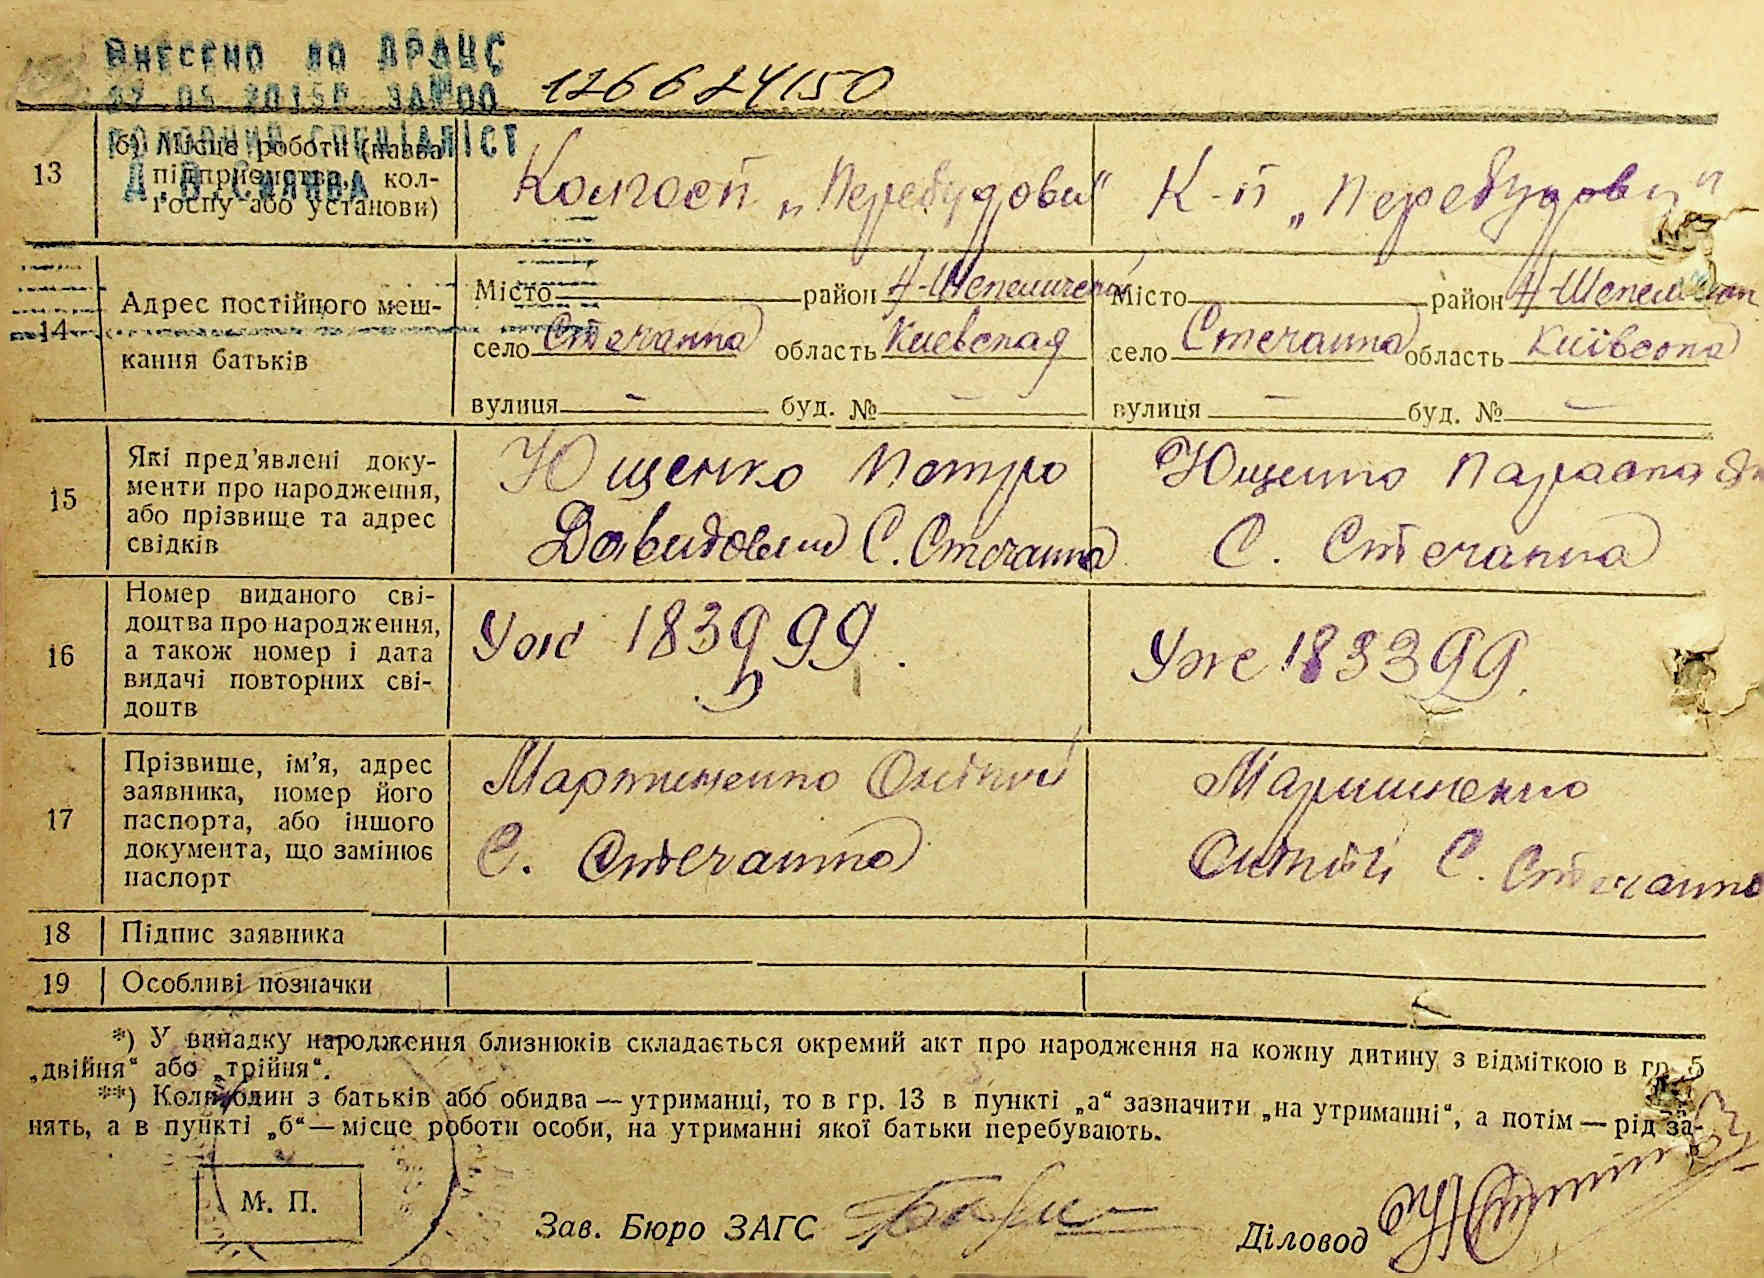 Внесено до ДРАЦС
126624150
Головний спеціаліст
13
б) Місце роботи (назва підприємства, колгоспу або установи)
Колгосп „Перебудова“
К-п „Перебудова“
14
Адрес постійного мешкання батьків
Місто район Н-Шепелический
село Стечанка область Киевская
вулиця – буд. № –
Місто район Н-Шепел
село Стечанка область Київська
вулиця – буд. № –
15
Які пред’явлені документи про народження, або прізвище та адрес свідків
Ющенко Петро
Давидович С. Стечанка
Ющенко Параска
С. Стечанка
16
Номер виданого свідоцтва про народження, а також номер і дата видачі повторних свідоцтв
Уже 183999
Уже 183399.
17
Прізвище, ім’я, адрес заявника, номер його паспорта, або іншого документа, що замінює паспорт
Мартиненко
С. Стечанка
Мартиненко
С. Стечанка
18
Підпис заявника
19
Особливі позначки
*) У випадку народження близнюків складається окремий акт про народження на кожну дитину з відміткою в гр. 5
„двійня“ або „трійня“.
**) Коли один з батьків або обидва — утриманці, то в гр. 13 в пункті „а“ зазначити „на утриманні“, а потім — рід за-
нять, а в пункті „б“ — місце роботи особи, на утриманні якої батьки перебувають.
М. П.
Зав. Бюро ЗАГС
Діловод